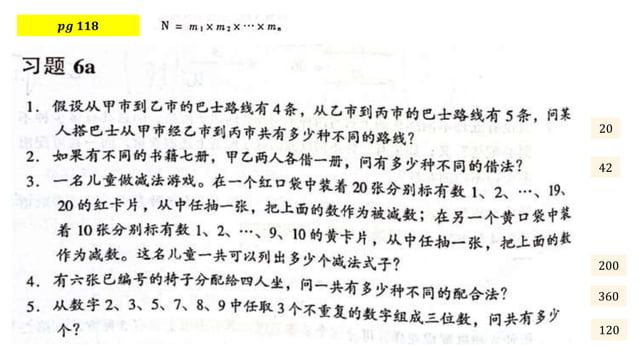 pg 118
N = m₁×m₂×⋯×mₙ
习题 6a
1. 假设从甲市到乙市的巴士路线有4条，从乙市到丙市的巴士路线有5条，问某
人搭巴士从甲市经乙市到丙市共有多少种不同的路线？
20
2. 如果有不同的书籍七册，甲乙两人各借一册，问有多少种不同的借法？
42
3. 一名儿童做减法游戏。在一个红口袋中装着20张分别标有数1、2、…、19、
20的红卡片，从中任抽一张，把上面的数作为被减数；在另一个黄口袋中装
着10张分别标有数1、2、…、9、10的黄卡片，从中任抽一张，把上面的数
作为减数。这名儿童一共可以列出多少个减法式子？
200
4. 有六张已编号的椅子分配给四人坐，问一共有多少种不同的配合法？
360
5. 从数字2、3、5、7、8、9中任取3个不重复的数字组成三位数，问共有多少
个？
120